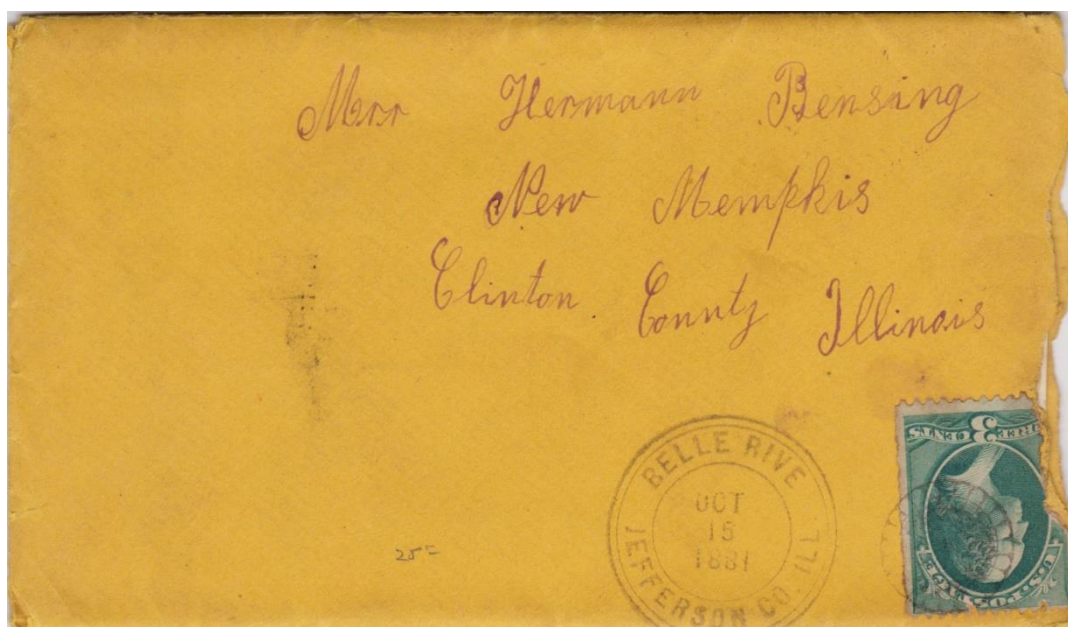 Mrsr Hermann Bensing
New Memphis
Clinton County Illinois
BELLE RIVE
OCT
15
1881
JEFFERSON CO. ILL
3
CENTS
25=